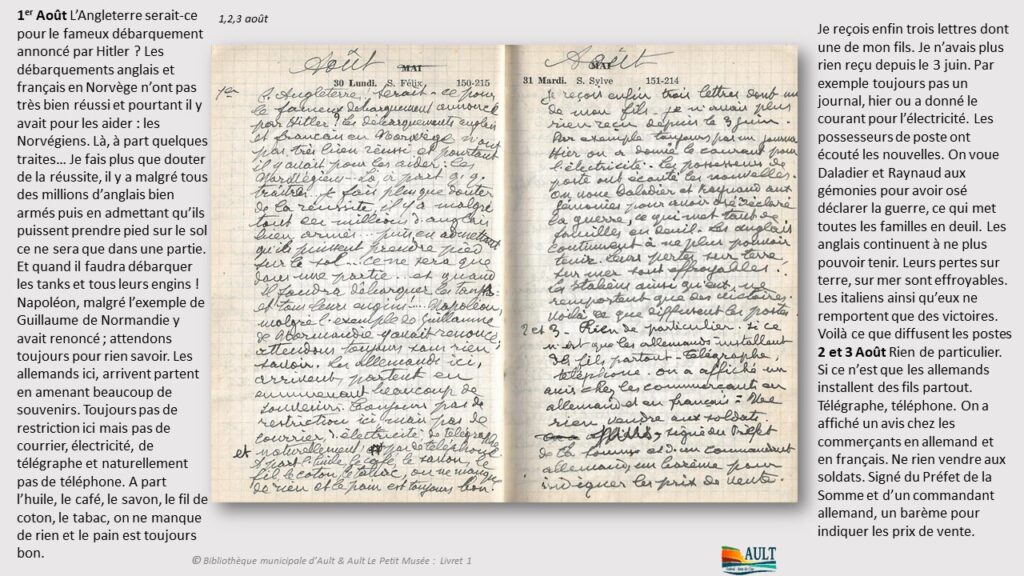 1er Août L'Angleterre serait-ce
pour le fameux débarquement
annoncé par Hitler ? Les
débarquements anglais et
français en Norvège n'ont pas
très bien réussi et pourtant il y
avait pour les aider : les
Norvégiens. Là, à part quelques
traites… Je fais plus que douter
de la réussite, il y a malgré tous
des millions d'anglais bien
armés puis en admettant qu'ils
puissent prendre pied sur le sol
ce ne sera que dans une partie.
Et quand il faudra débarquer
les tanks et tous leurs engins !
Napoléon, malgré l'exemple de
Guillaume de Normandie y
avait renoncé ; attendons
toujours pour rien savoir. Les
allemands ici, arrivent partent
en amenant beaucoup de
souvenirs. Toujours pas de
restriction ici mais pas de
courrier, électricité, de
télégraphe et naturellement
pas de téléphone. A part
l'huile, le café, le savon, le fil de
coton, le tabac, on ne manque
de rien et le pain est toujours
bon.
1,2,3 août
Août
MAI
30 Lundi. S. Félix. 150-215
1er L'Angleterre, serait-ce pour
le fameux débarquement annoncé
par Hitler ? les débarquements anglais
et français en Norwège n'ont
pas très bien réussi et pourtant
il y avait pour les aider : les
Norwégiens là, à part q.q.
traîtres. Je fais plus que douter
de la réussite, il y a malgré
tout des millions d'anglais
bien armés... puis en admettant
qu'ils puissent prendre pied
sur le sol... ce ne sera que
dans une partie... et quand
il faudra débarquer les tanks
et tous leurs engins !... Napoléon,
malgré l'exemple de Guillaume
de Normandie y avait renoncé,
attendons toujours sans rien
savoir. Les allemands ici,
arrivent, partent en
emmenant beaucoup de
souvenirs. Toujours pas de
restriction ici, mais pas de
courrier, d'électricité de télégraphe
et naturellement pas de téléphone
A part l'huile, le café, le savon, le
fil, le coton, le tabac, on ne manque
de rien et le pain est toujours bon.
Août
MAI
31 Mardi. S. Sylve 151-214
Je reçois enfin trois lettres dont une
de mon fils. Je n'avais plus
rien reçu depuis le 3 juin.
Par exemple toujours pas un journal
Hier on a donné le courant pour
l'électricité. Les possesseurs de
poste ont écouté les nouvelles.
On voue Daladier et Raynaud aux
gémonies pour avoir osé déclaré
la guerre, ce qui met tant de
familles en deuil. Les anglais
continuent à ne plus pouvoir
tenir, leurs pertes sur terre
sur mer sont effroyables.
les Italiens ainsi qu'eux, ne
remportent que des victoires.
Voilà ce que diffusent les postes.
2 et 3. Rien de particulier. si ce
n'est que les allemands installent
des fils, partout. Télégraphe,
téléphone. on a affiché un
avis chez les commerçants en
allemand et en français : Ne
rien vendre aux soldats.
signé du Préfet
de la Somme et d'un commandant
allemand, un barème pour
indiquer les prix de vente.
Je reçois enfin trois lettres dont
une de mon fils. Je n'avais plus
rien reçu depuis le 3 juin. Par
exemple toujours pas un
journal, hier ou a donné le
courant pour l'électricité. Les
possesseurs de poste ont
écouté les nouvelles. On voue
Daladier et Raynaud aux
gémonies pour avoir osé
déclarer la guerre, ce qui met
toutes les familles en deuil. Les
anglais continuent à ne plus
pouvoir tenir. Leurs pertes sur
terre, sur mer sont effroyables.
Les italiens ainsi qu'eux ne
remportent que des victoires.
Voilà ce que diffusent les postes
2 et 3 Août Rien de particulier.
Si ce n'est que les allemands
installent des fils partout.
Télégraphe, téléphone. On a
affiché un avis chez les
commerçants en allemand et
en français. Ne rien vendre aux
soldats. Signé du Préfet de la
Somme et d'un commandant
allemand, un barème pour
indiquer les prix de vente.
© Bibliothèque municipale d'Ault & Ault Le Petit Musée : Livret 1
AULT